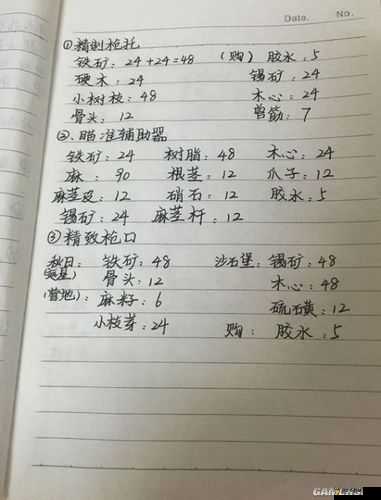 Data. No.
①精制枪托
铁矿：24+24=48 （购）胶水：5
硬木：24 锡矿：24
小树枝：48 木心：24
骨头：12 兽筋：7
②瞄准辅助器
铁矿：24 树脂：48 木心：24
麻：90 根茎：12 爪子：12
麻茎皮：12 硝石：12 胶水：5
锡矿：24 麻茎杆：12
③精致枪口
秋日：铁矿：48 沙石堡：锡矿：48
骨头：12 木心：48
（营地）：麻籽：6 硫磺：12
小枝芽：24 购：胶水：5